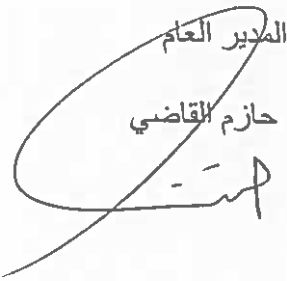 المدير العام
حازم القاضي